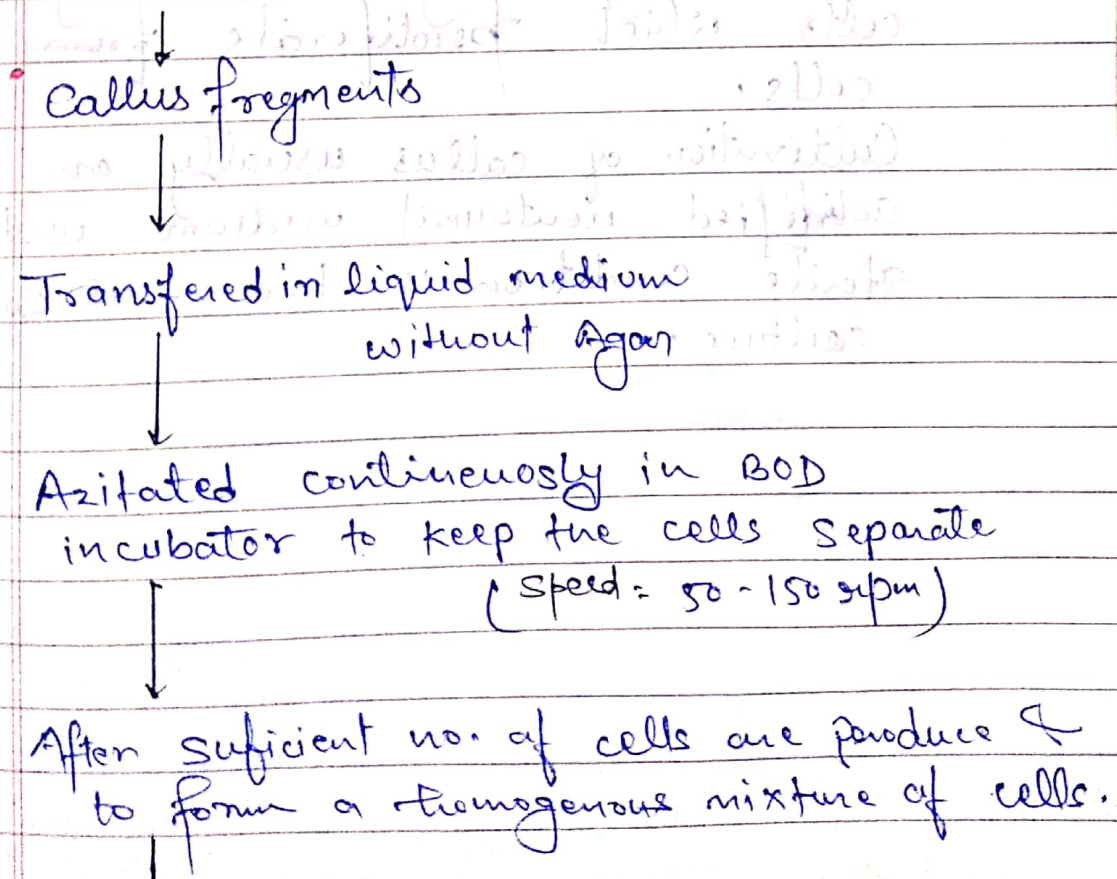 Callus fregments
Transfered in liquid medium
without Agar
Azitated contineuosly in BOD
incubator to keep the cells separate
(Speed = 50-150 rpm)
After suficient no. of cells are produce &
to form a homogenous mixture of cells.